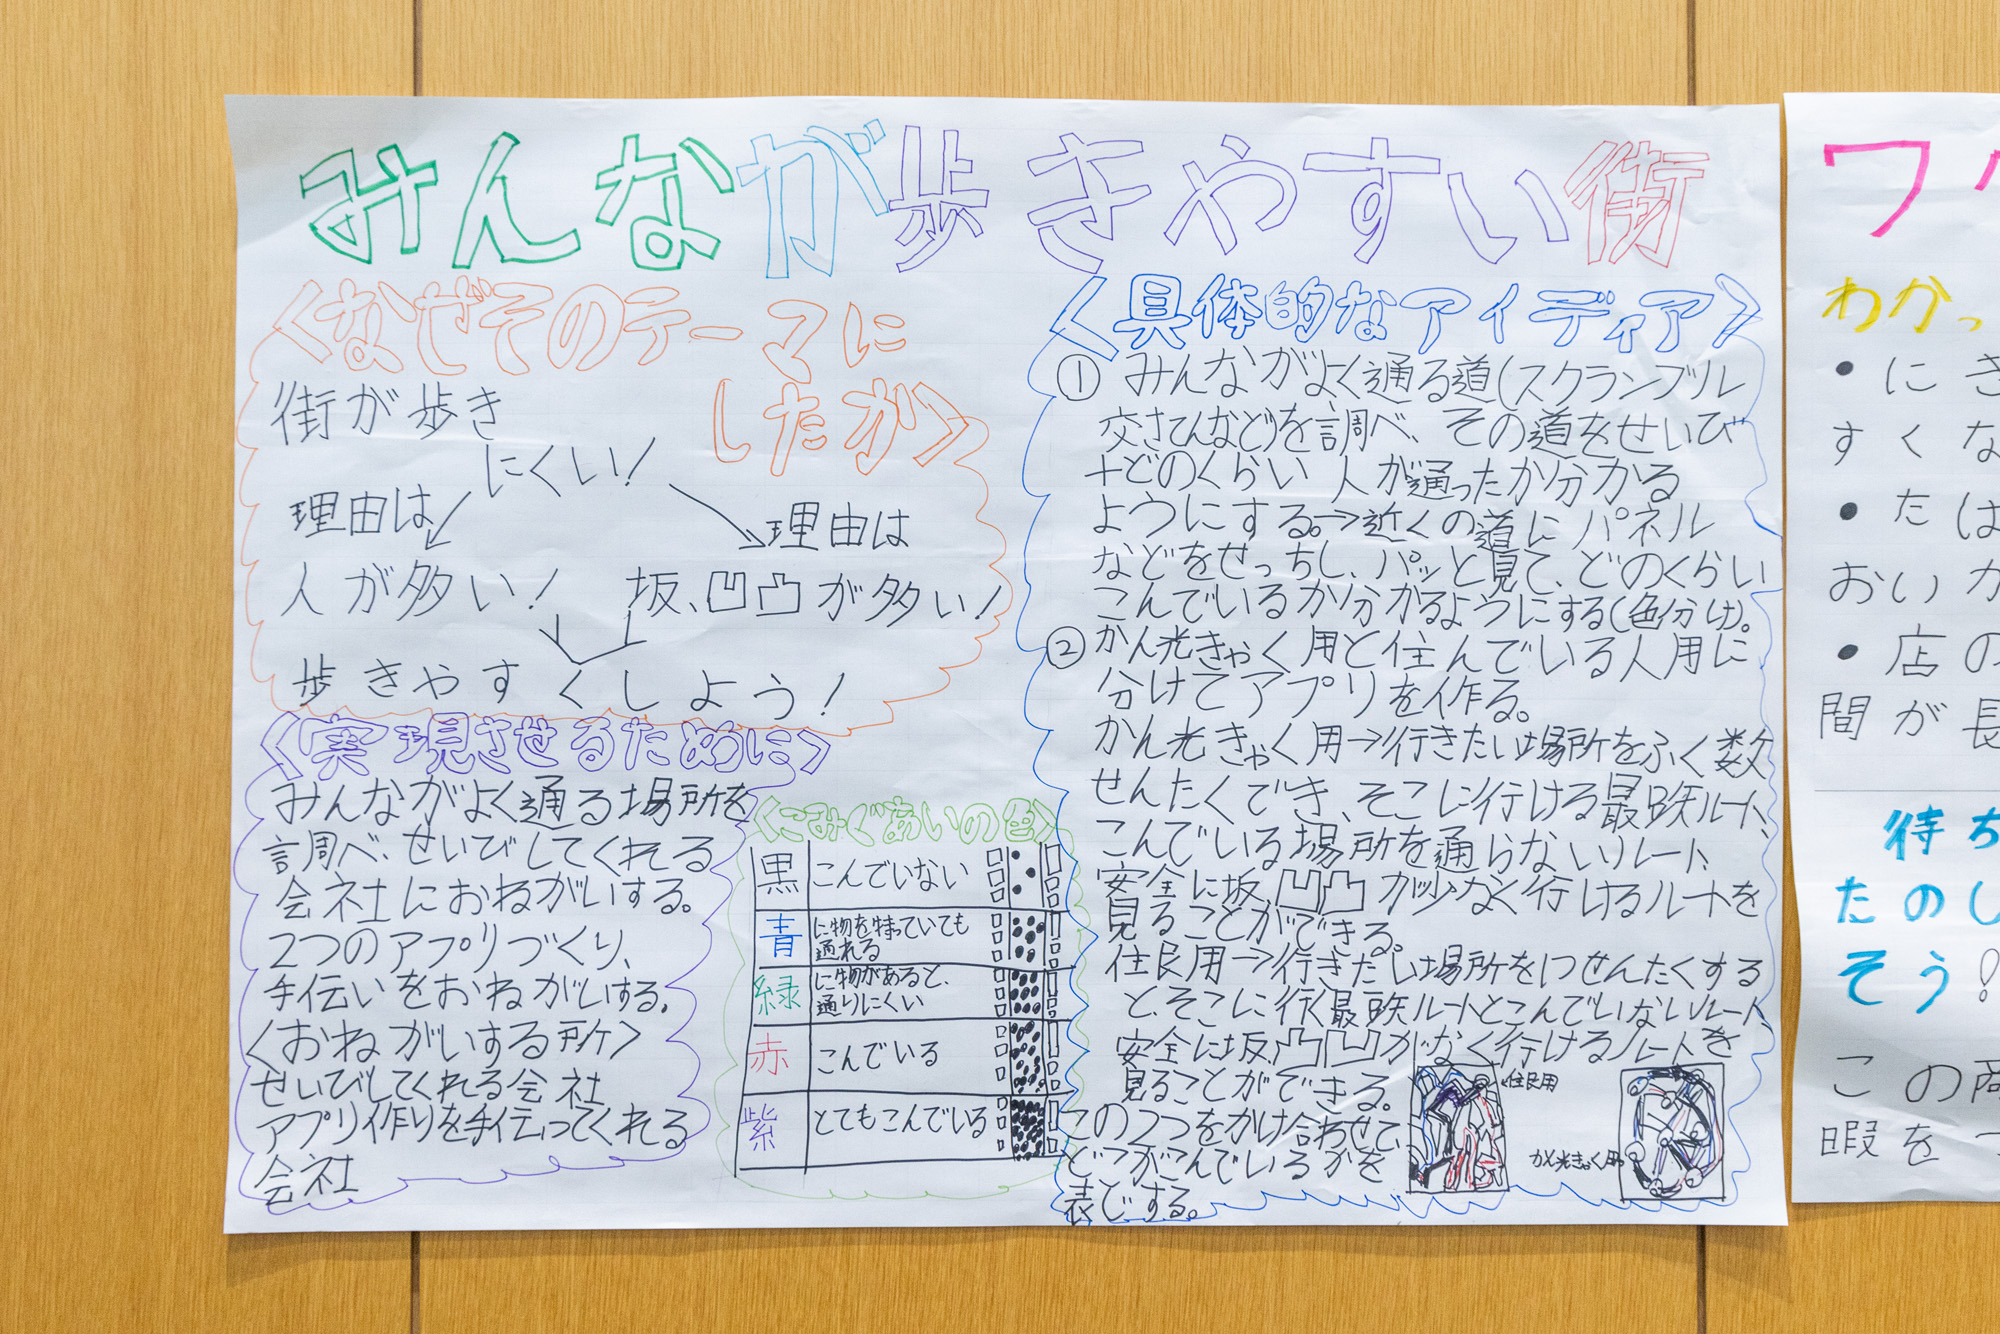 みんなが歩きやすい街
〈なぜそのテーマに
したか〉
街が歩き
にくい!
理由は
人が多い!
理由は
坂、凹凸が多い!
歩きやすくしよう!
〈実現させるために〉
みんながよく通る場所を
調べ、せいびしてくれる
会社におねがいする。
2つのアプリづくり、
手伝いをおねがいする。
〈おねがいする所〉
せいびしてくれる会社
アプリ作りを手伝ってくれる
会社
〈こみぐあいの色〉
黒 こんでいない
青 に物を持っていても
通れる
緑 に物があると、
通りにくい
赤 こんでいる
紫 とてもこんでいる
〈具体的なアイディア〉
① みんながよく通る道(スクランブル
交さてんなど)を調べ、その道をせいび
+どのくらい人が通ったか分かる
ようにする。→近くの道にパネル
などをせっちし、パッと見て、どのくらい
こんでいるか分かるようにする(色分け)。
② かん光きゃく用と住んでいる人用に
分けてアプリを作る。
かん光きゃく用→行きたい場所をふく数
せんたくでき、そこに行ける最短ルート、
こんでいる場所を通らないルート、
安全に坂、凹凸が少なく行けるルートを
見ることができる。
住民用→行きたい場所を1つせんたくする
と、そこに行く最短ルートとこんでいないルート、
安全に坂、凸凹がなく行けるルートを
見ることができる。
この2つをかけ合わせて、
どこがこんでいるかを
表じする。
住民用
かん光きゃく用
ワ
わかっ
・にき
すくな
・たは
おいか
・店の
間が長
待ち
たのし
そう!
この商
暇をつ